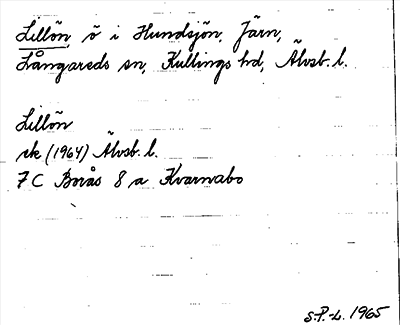 Lillön, ö i Hundsjön, Järn,
Långareds sn, Kullings hd, Älvsb. l.
Lillön
ek (1964) Älvsb. l.
7 C Borås 8 a Kvarnabo
S.-P.-L. 1965